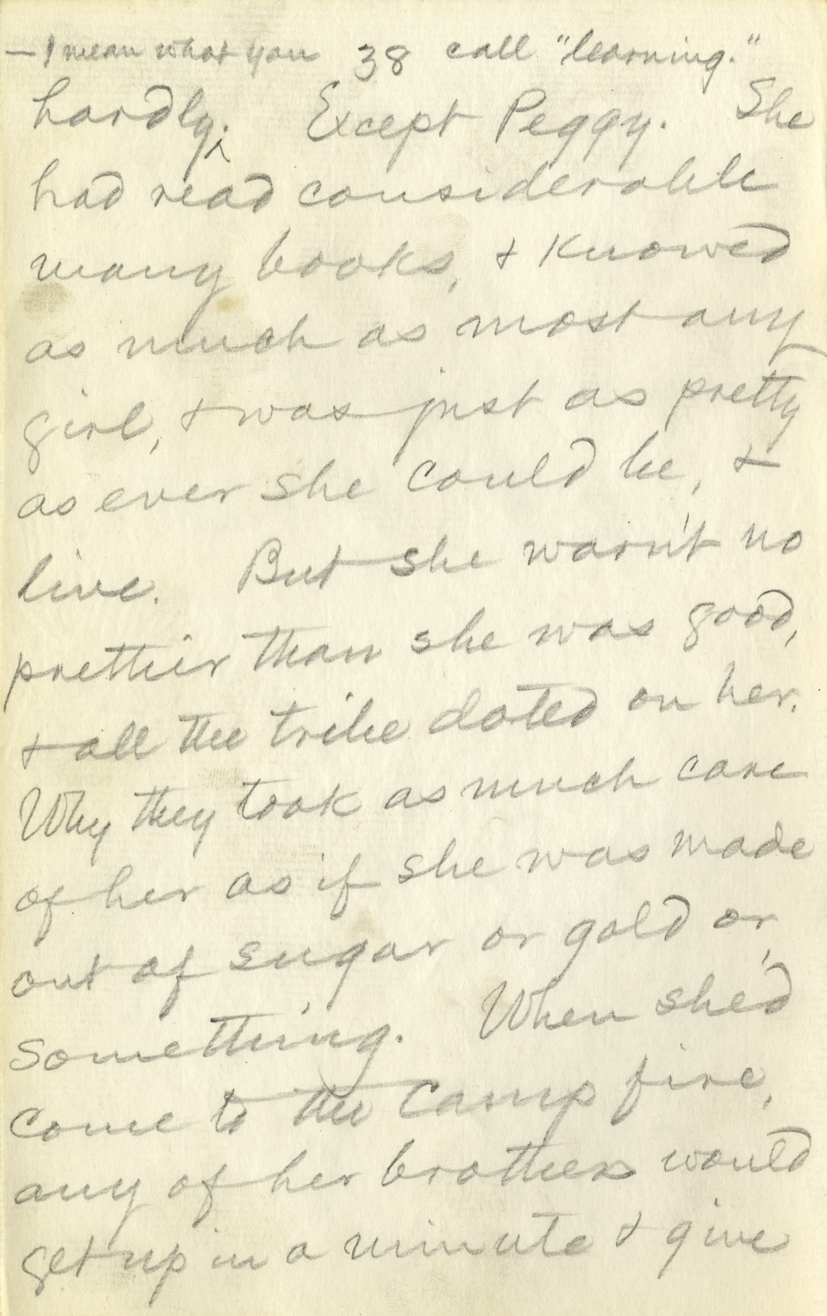 — I mean what you 38 call "learning."
hardly.‸ Except Peggy. She
had read considerable
many books, & knowed
as much as most any
girl, & was just as pretty
as ever she could be, &
live. But she warn't no
prettier than she was good,
& all the tribe doted on her.
Why they took as much care
of her as if she was made
out of sugar or gold or
something. When she'd
come to the camp fire,
any of her brothers would
get up in a minute & give